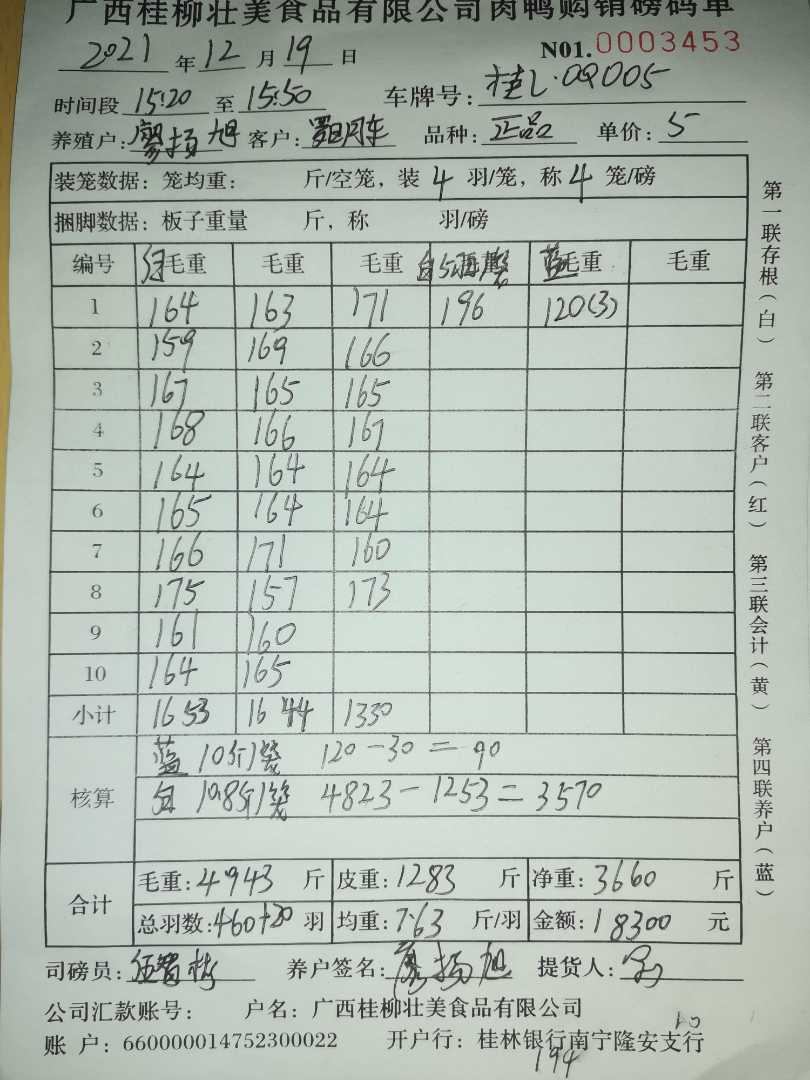 广西桂柳壮美食品有限公司肉鸭购销磅码单
2021 年 12 月 19 日 N01. 0003453
时间段 15:20 至 15:50 车牌号: 桂L·0Q005
养殖户: 廖扬旭 客户: 品种: 正品 单价: 5
装笼数据: 笼均重: 斤/空笼, 装 4 羽/笼, 称 4 笼/磅
捆脚数据: 板子重量 斤, 称 羽/磅
编号 白毛重 毛重 毛重 白5 蓝毛重 毛重
1 164 163 171 196 120(3)
2 159 169 166
3 167 165 165
4 168 166 167
5 164 164 164
6 165 164 164
7 166 171 160
8 175 157 173
9 161 160
10 164 165
小计 1653 1644 1330
核算 蓝 10斤/笼 120-30=90
白 10.8斤/笼 4823-1253=3570
合计 毛重: 4943 斤 皮重: 1283 斤 净重: 3660 斤
总羽数: 460+20 羽 均重: 7.63 斤/羽 金额: 18300 元
司磅员: 养户签名: 廖扬旭 提货人:
公司汇款账号: 户名: 广西桂柳壮美食品有限公司
账 户: 660000014752300022 开户行: 桂林银行南宁隆安支行
194
第一联存根(白) 第二联客户(红) 第三联会计(黄) 第四联养户(蓝)